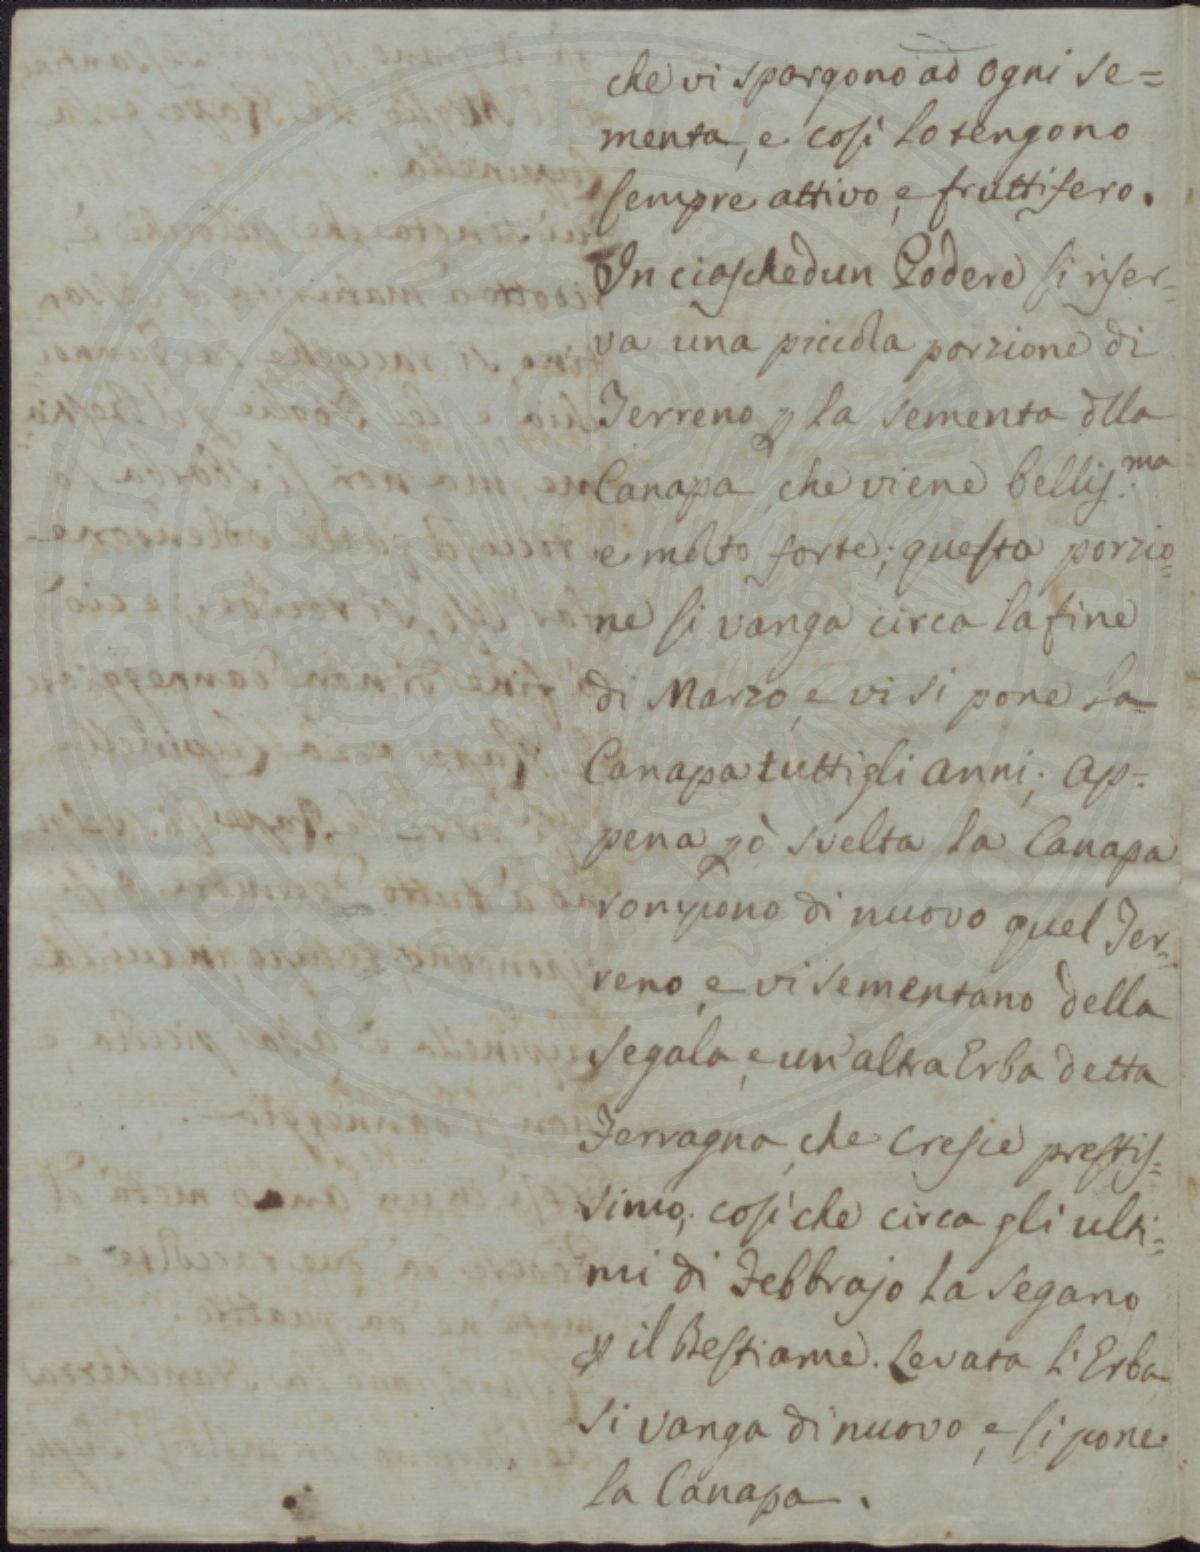 che vi spargono ad ogni se=
menta, e così lo tengono
sempre attivo, e fruttifero.
In ciaschedun Podere si riser=
va una piccola porzione di
Terreno p la sementa dlla
Canapa, che viene bellis.ma
e molto forte; questa porzio=
ne si vanga circa la fine
di Marzo, e vi si pone la
Canapa tutti gli anni. Ap=
pena pò svelta la Canapa
rompono di nuovo quel Ter=
reno, e vi sementano della
Segala, e un'altra Erba detta
Ferragna, che cresce prestis=
simo; così che circa gli ulti=
mi di Febbrajo la segano
p il Bestiame. Levata l'Erba
si vanga di nuovo, e si pone
la Canapa.